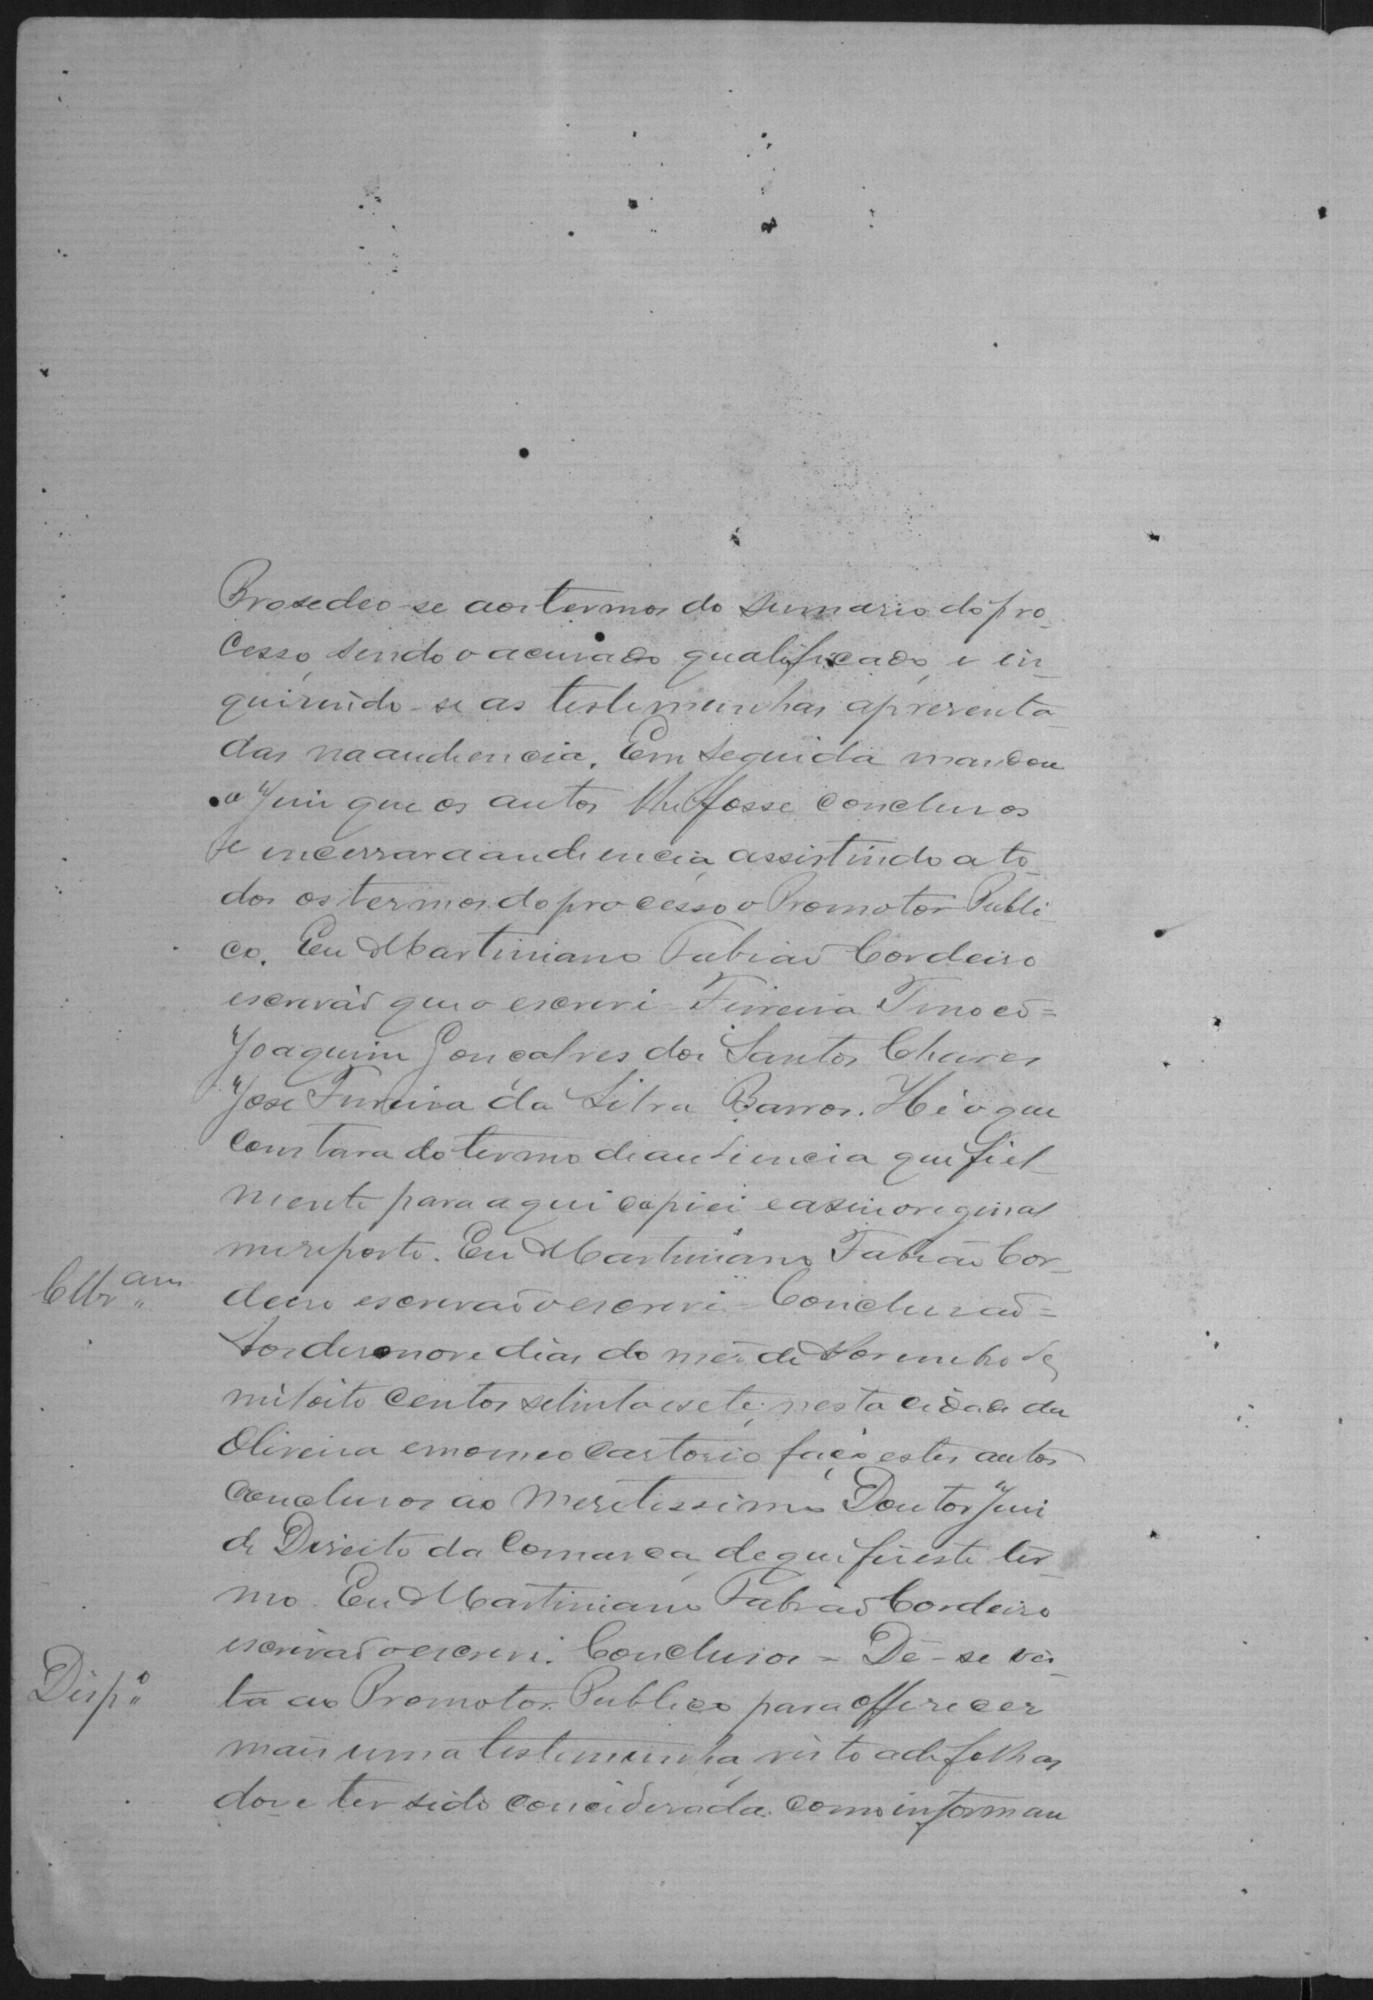 Prosedeo-se aos termos do sumario do pro-
cesso, sendo o acusado qualificado, e in-
quirindo-se as testemunhas apresenta-
das na audiencia. Em seguida mandou
o Juis que os autos lhe fosse conclusos
e encerrar a audiencia, assistindo a to-
dos os termos do processo o Promotor Publi-
co. Eu Martiniano Fabiaõ Cordeiro
escrivaõ que o escrevi Ferreira Tinoco =
Joaquim Gonçalves dos Santos Chaves
Jose Ferreira da Silva Barros. Hé o que
constava do termo de audiencia que fiel-
mente para aqui copiei e a seu original
me reporto. Eu Martiniano Fabiaõ Cor-
Cllz.am
deiro escrivaõ o escrevi = Conclusaõ =
Aos desonove dias do mes de Novembro de
mil oito centos setenta e sete, nesta cidade da
Oliveira em o meo cartorio faço estes autos
conclusos ao Meretissimo Doutor Juis
de Direito da Comarca, de que fis este ter-
mo. Eu Martiniano Fabiaõ Cordeiro
escrivaõ o escrevi. Conclusos = Dê-se vis-
Disp.o
ta ao Promotor Publico para offerecer
mais uma testemunha, visto a de folhas
dose ter sido conciderada como informan